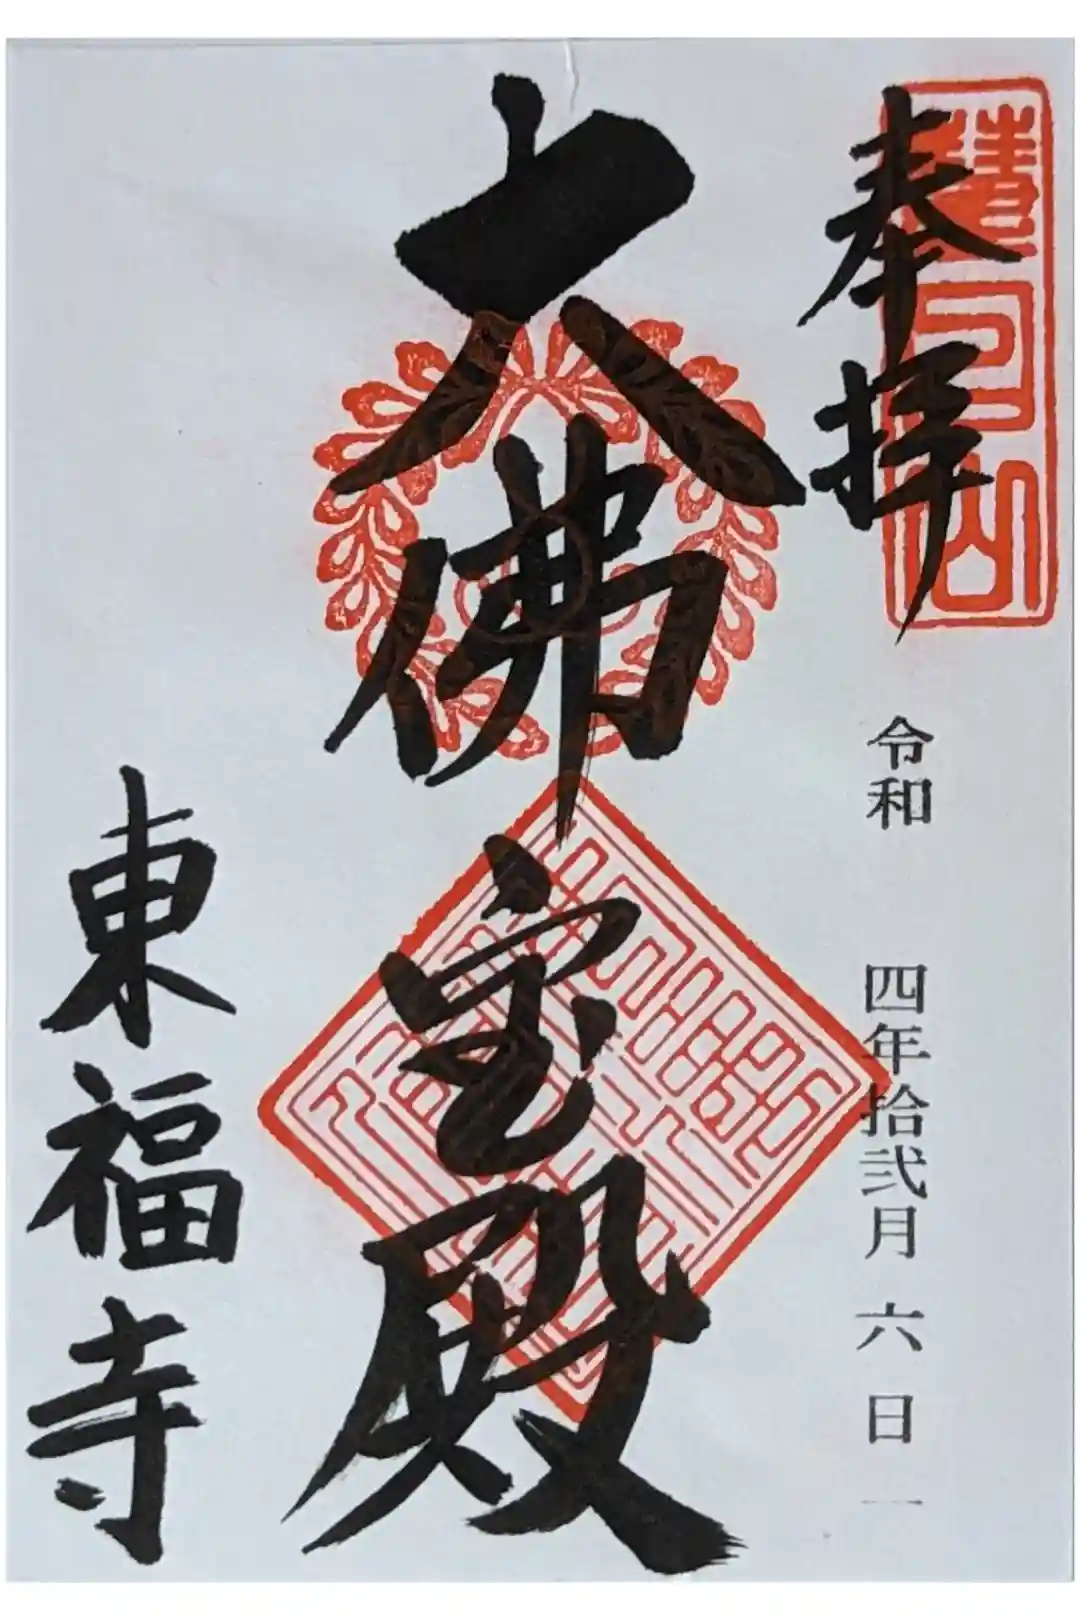 奉拝
慧日山
令和 四年拾弐月 六 日
大佛宝殿
東福寺